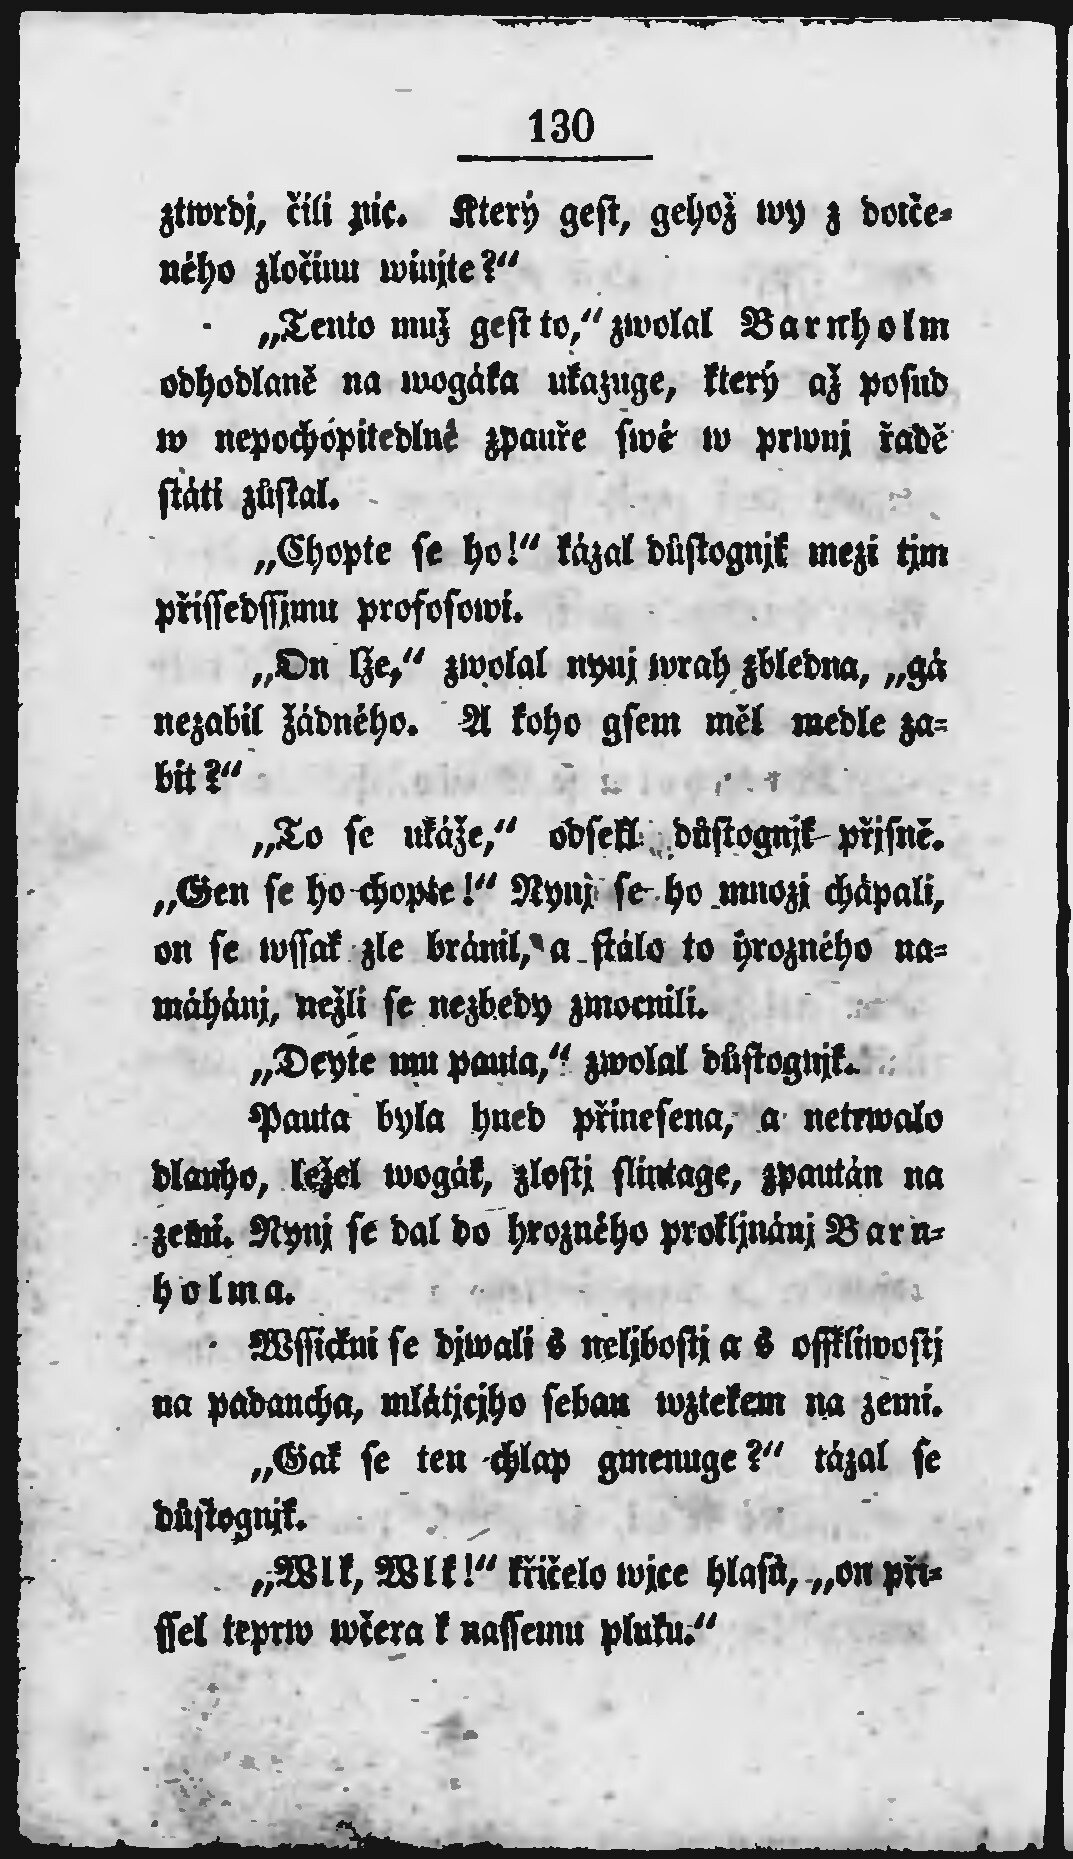 130
ztwrdj, čili nic. Který gest, gehož wy z dotče-
ného zločinu winjte?“
„Tento muž gest to,“ zwolal Barnholm
odhodlaně na wogáka ukazuge, který až posud
w nepochopitedlné zpauře swé w prwnj řadě
státi zůstal.
„Chopte se ho!“ kázal důstognjk mezi tjm
přissedssjmu profosowi.
„On lže,“ zwolal nynj wrah zbledna, „gá
nezabil žádného. A koho gsem měl medle za-
bit?“
„To se ukáže,“ odsekl důstognjk přjsně.
„Gen se ho chopte!“ Nynj se ho mnozj chápali,
on se wssak zle bránil, a stálo to hrozného na-
máhánj, nežli se nezbedy zmocnili.
„Deyte mu pauta,“ zwolal důstognjk.
Pauta byla hned přinesena, a netrwalo
dlauho, ležel wogák, zlostj slintage, zpaután na
zemi. Nynj se dal do hrozného prokljnánj Barn-
holma.
Wssickni se djwali s neljbostj a s osskliwostj
na padaucha, mlátjcjho sebau wztekem na zemi.
„Gak se ten chlap gmenuge?“ tázal se
důstognjk.
„Wlk, Wlk!“ křičelo wjce hlasů, „on při-
ssel teprw wčera k nassemu pluku.“